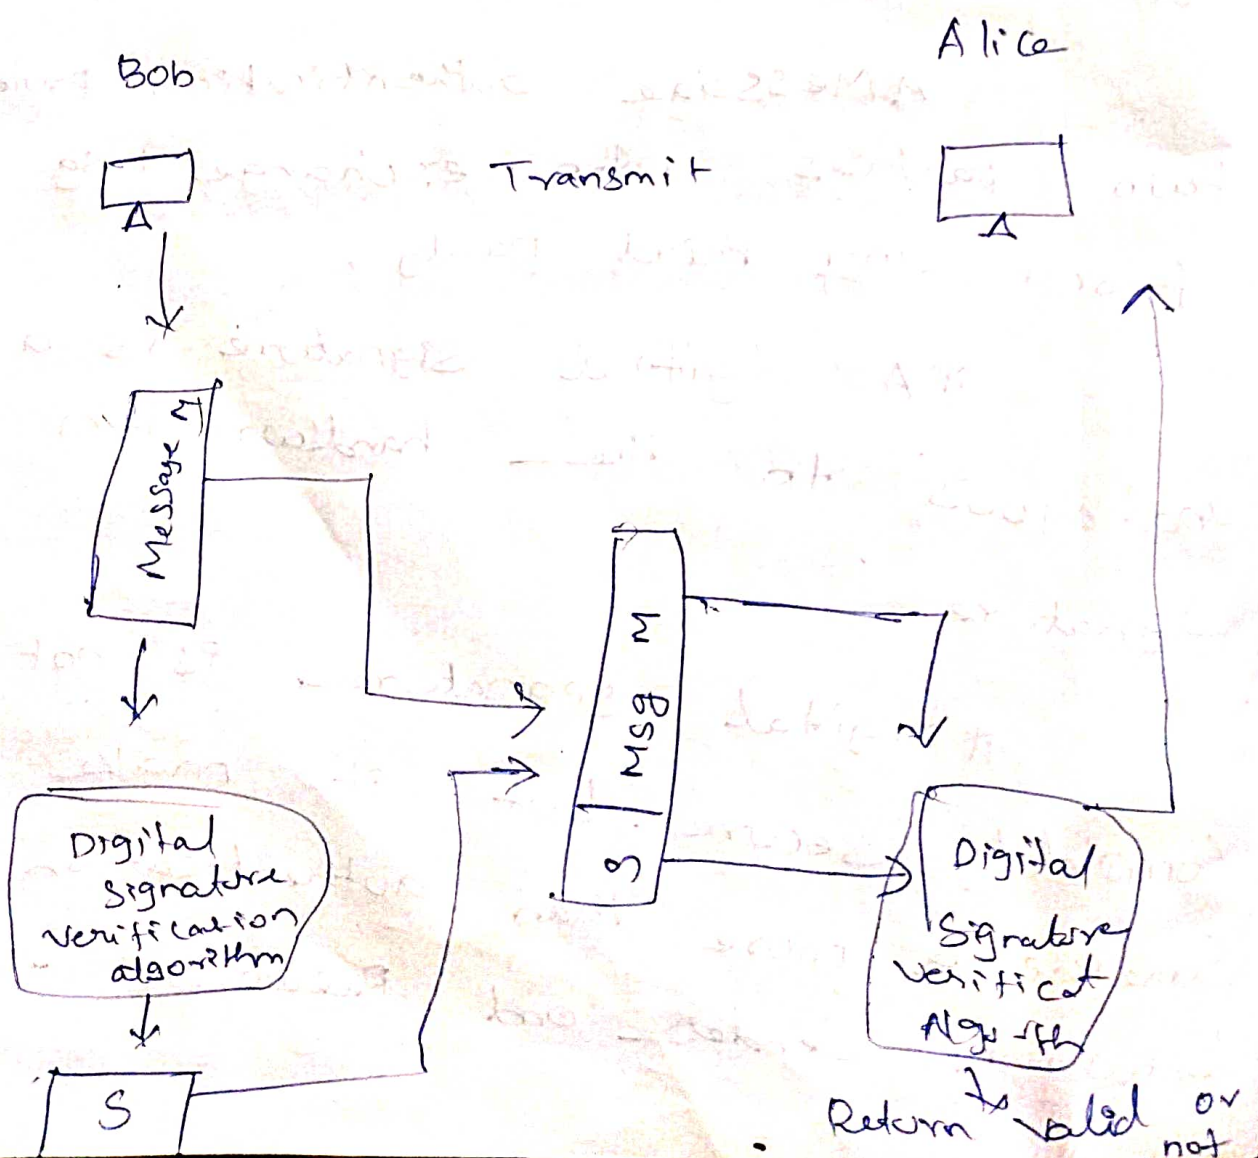 Bob
Alice
Transmit
Message M
Msg M
S
Digital
Signature
verification
algorithm
S
Digital
Signature
verificat
Return valid or
not